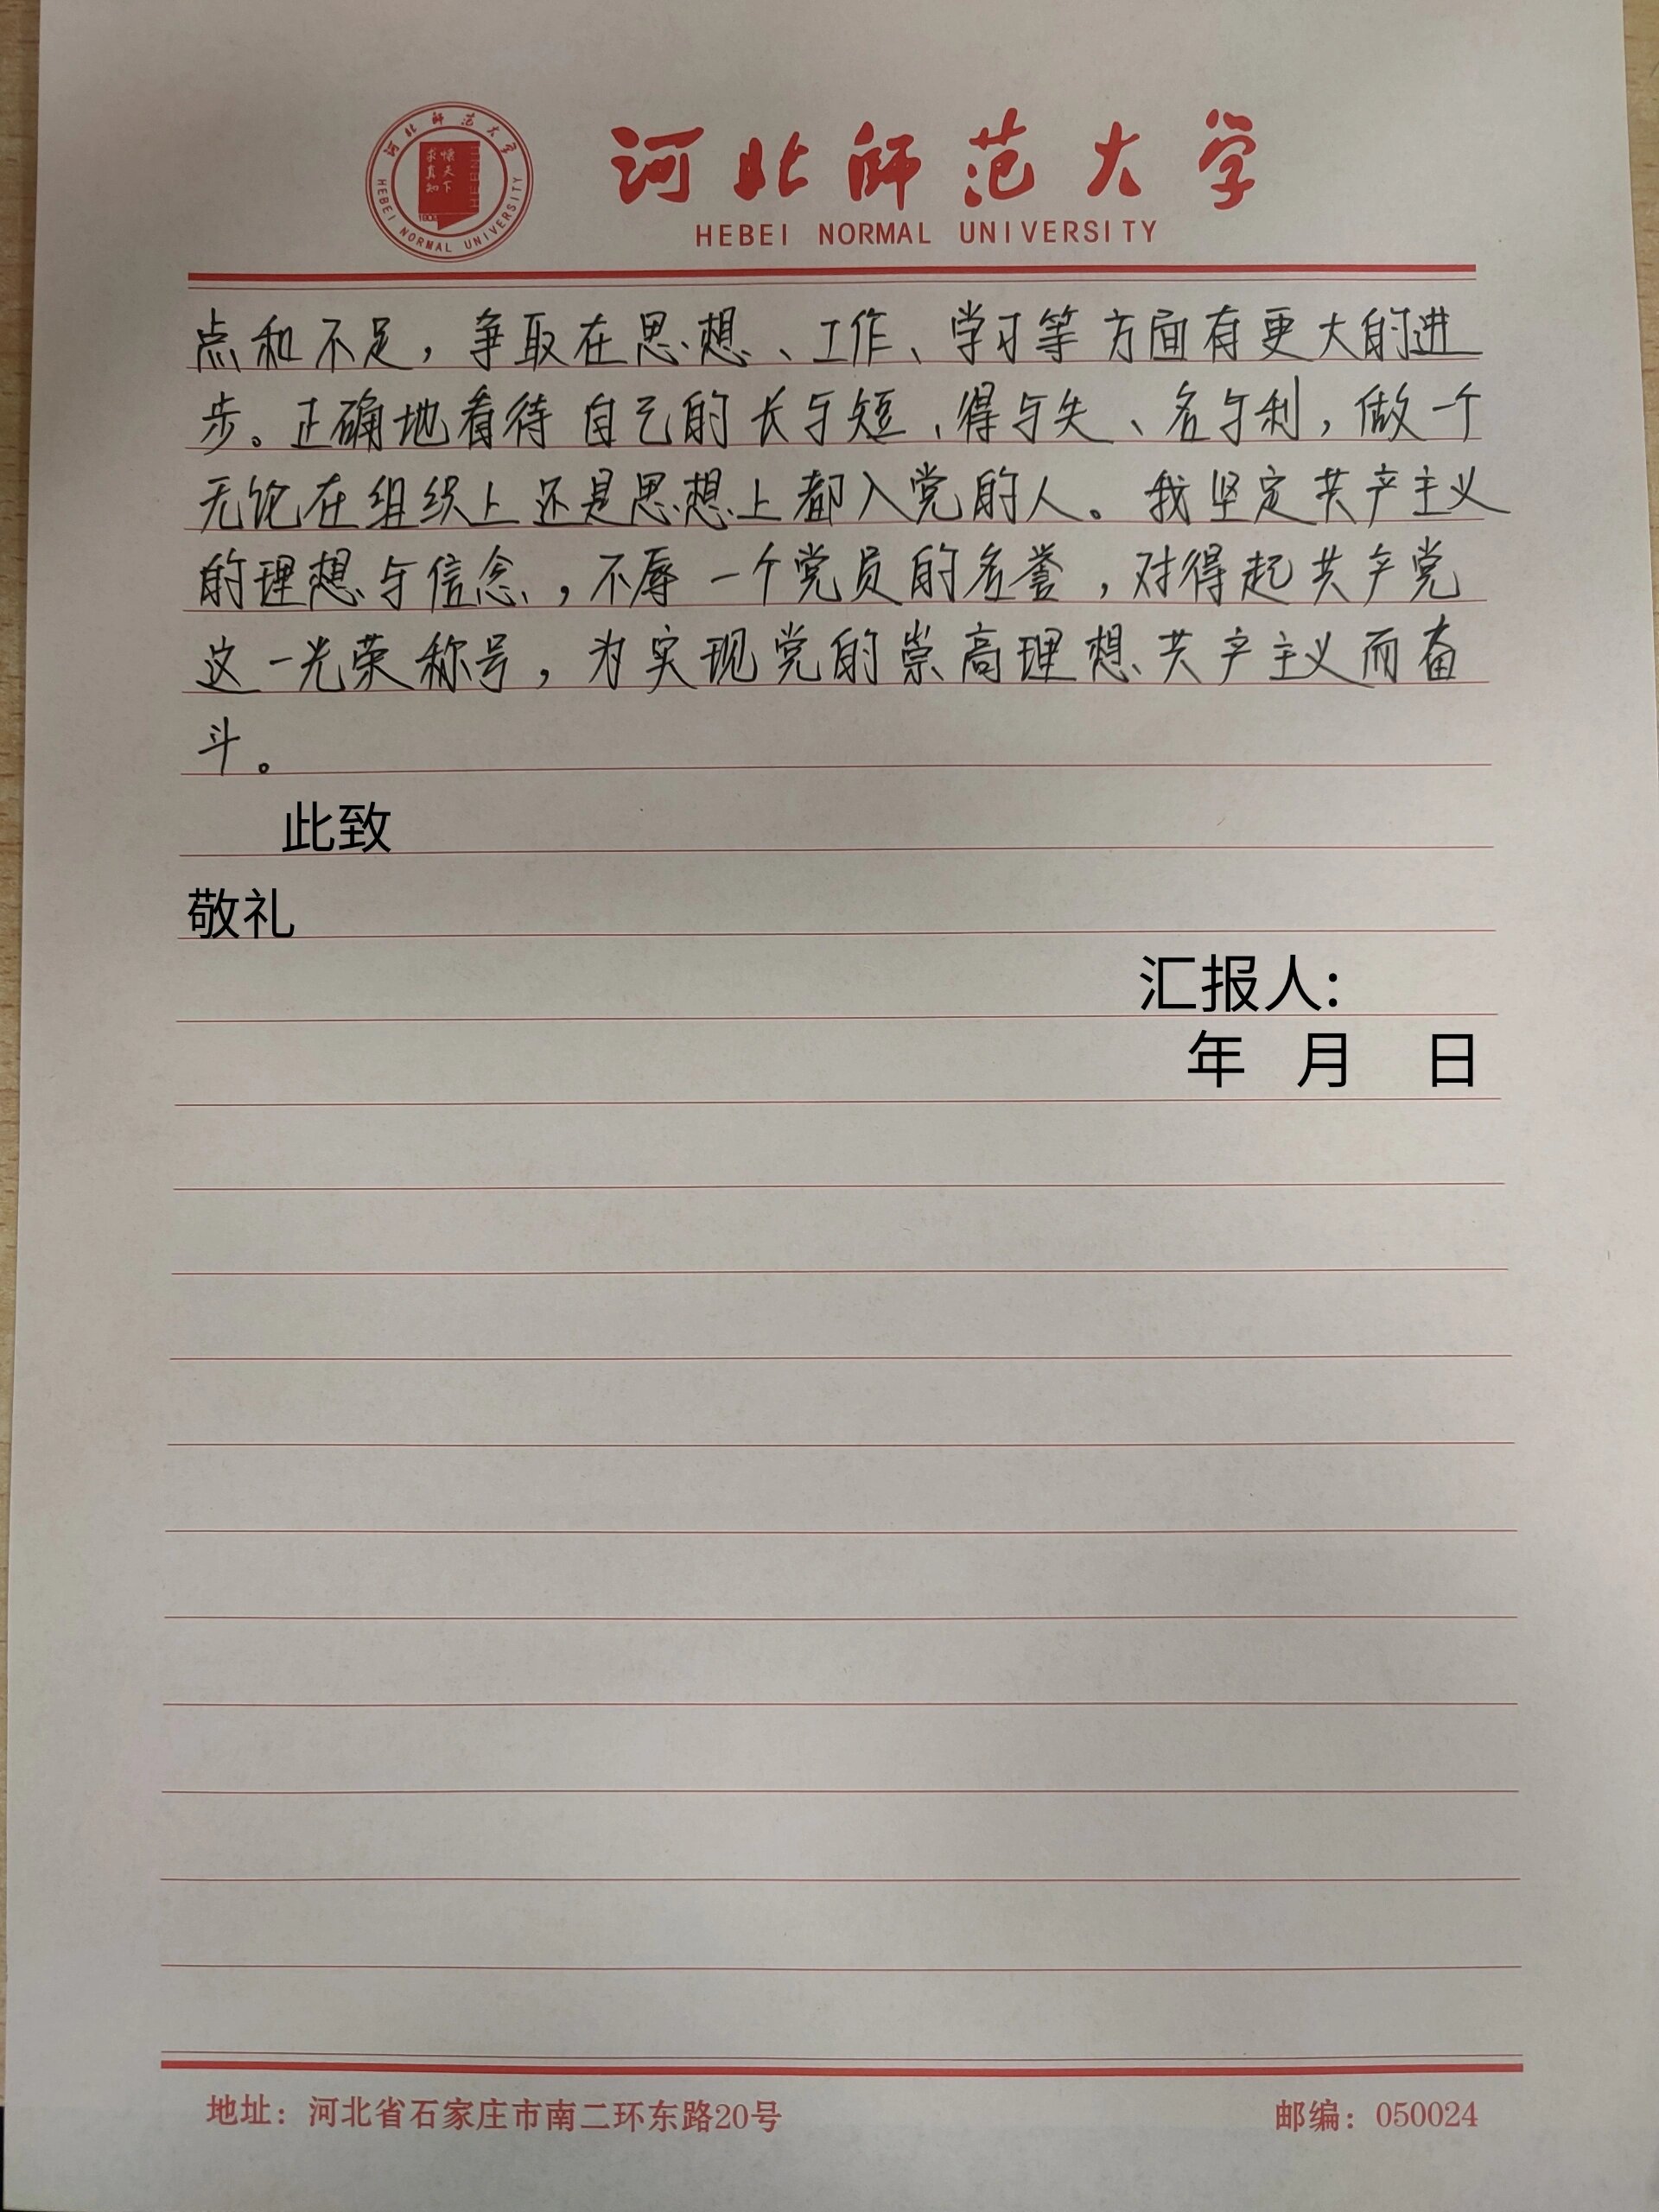 河北师范大学
HEBEI NORMAL UNIVERSITY
河北师范大学
HEBEI NORMAL UNIVERSITY
怀天下
求真知
1902
点和不足，争取在思想、工作、学习等方面有更大的进
步。正确地看待自己的长与短、得与失、名与利，做一个
无论在组织上还是思想上都入党的人。我坚定共产主义
的理想与信念，不辱一个党员的名誉，对得起共产党
这一光荣称号，为实现党的崇高理想共产主义而奋
斗。
此致
敬礼
汇报人:
年 月 日
地址：河北省石家庄市南二环东路20号
邮编：050024